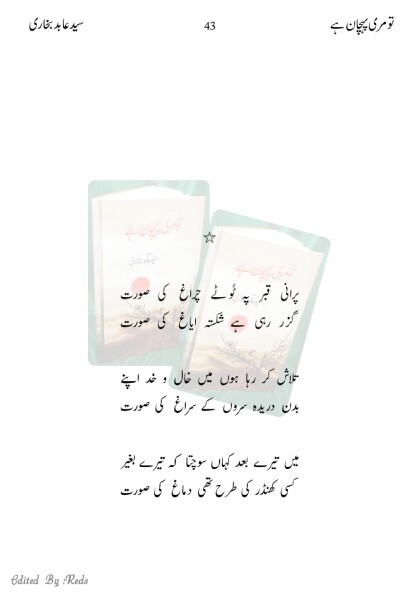 تو مری پہچان ہے 43 سید عابد بخاری
☆
پرانی قبر پہ ٹوٹے چراغ کی صورت
گزر رہی ہے شکستہ ایاغ کی صورت
تلاش کر رہا ہوں میں خال و خد اپنے
بدن دریدہ سروں کے سراغ کی صورت
میں تیرے بعد کہاں سوچتا کہ تیرے بغیر
کسی کھنڈر کی طرح تھی دماغ کی صورت
Edited By :Reds